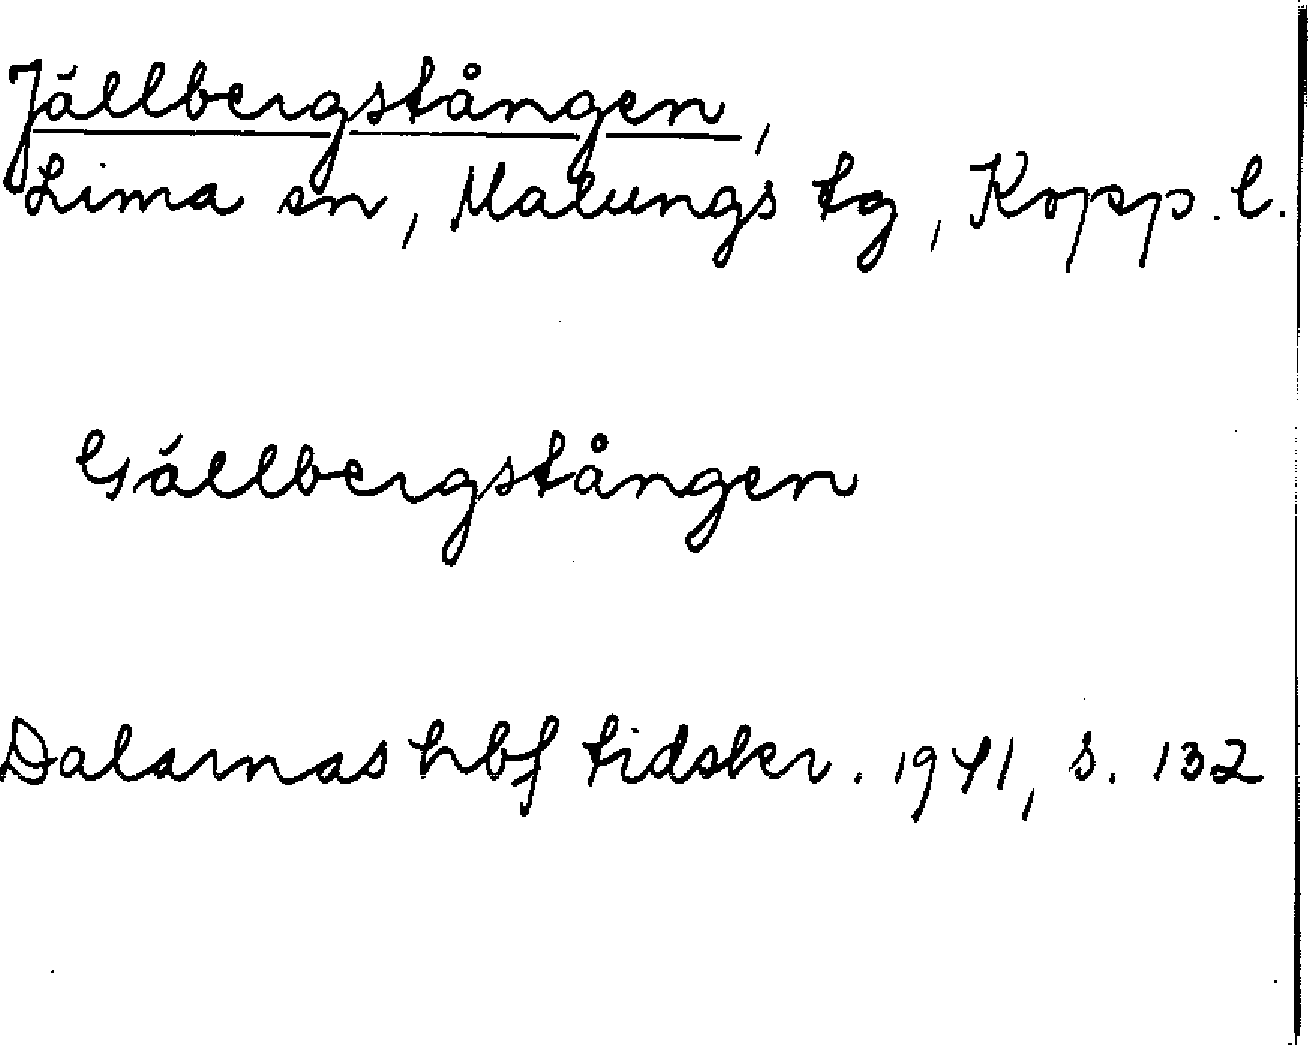 Jällbergstången,
Lima sn, Malungs tg, Kopp. l.
Gällbergstången
Dalarnas hbf tidskr. 1941, s. 132